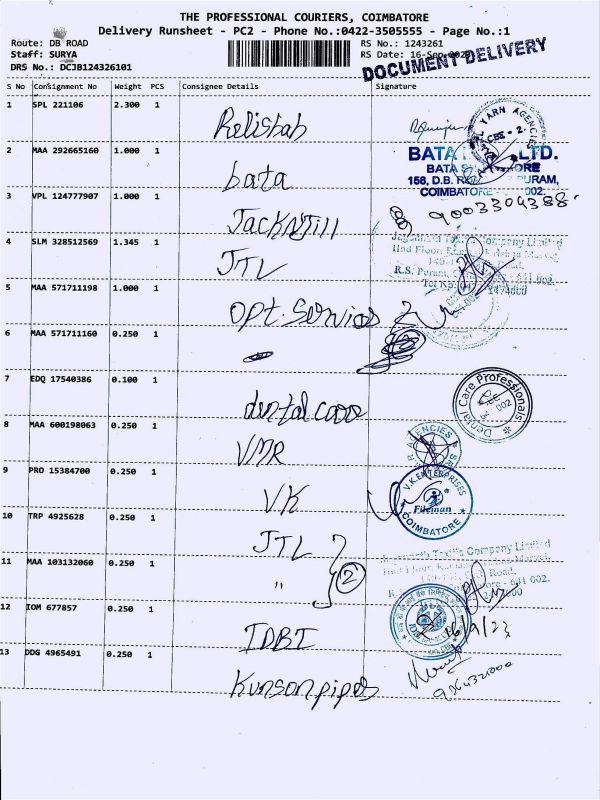 THE PROFESSIONAL COURIERS, COIMBATORE
Delivery Runsheet - PC2 - Phone No.:0422-3505555 - Page No.:1
Route: DB ROAD RS No.: 1243261
Staff: SURYA RS Date: 16-Sep
DRS No.: DCJB124326101
DOCUMENT DELIVERY
S No Consignment No Weight PCS Consignee Details Signature
1 SPL 221106 2.300 1 Relistab
YARN AGENCIES
CBE - 2.
2 MAA 292665160 1.000 1 bata
BATA LTD.
BATA
158, D.B. PURAM,
COIMBATORE 002.
3 VPL 124777907 1.000 1 JackNJill
9003304388
4 SLM 328512569 1.345 1 JTL
Textile Company Limited
R.S. Puram, 641 002.
5 MAA 571711198 1.000 1 opt. Servios 2
6 MAA 571711160 0.250 1
7 EDQ 17540386 0.100 1 dental care
Dental Care Professionals
8 MAA 600198063 0.250 1 VMR
AGENCIES
9 PRO 15384700 0.250 1 VK
V.K.ENTERPRISES
Fileman
COIMBATORE
10 TRP 4925628 0.250 1 JTL
Textile Company Limited
Road,
641 002.
11 MAA 103132060 0.250 1 " 2
12 IOM 677857 0.250 1 IDBI
16/9/23
13 DDG 4965491 0.250 1 Kunson pipes